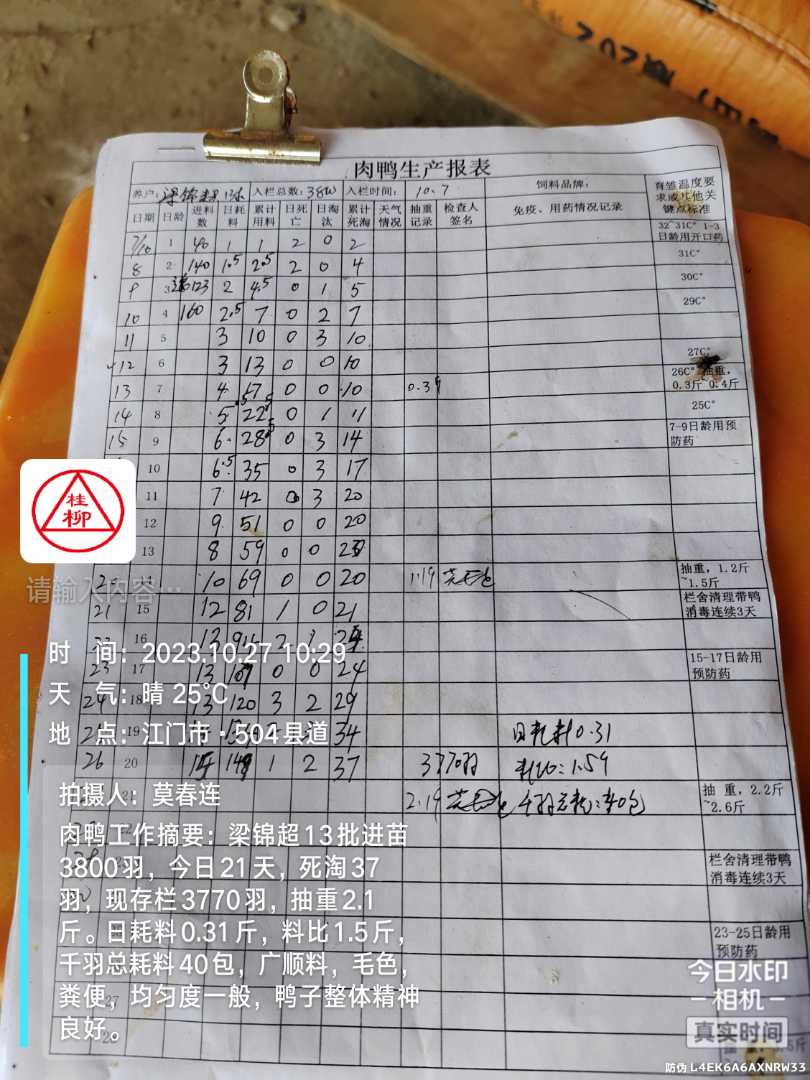 肉鸭生产报表
养户: 梁锦超13批 入栏总数: 38W 入栏时间: 10.7 饲料品牌: 育雏温度要求或其他关键点标准
日期 日龄 进料数 日耗料 累计用料 日死亡 日淘汰 累计死淘 天气情况 抽重记录 检查人签名 免疫、用药情况记录
7/10 1 40 1 1 2 0 2 32~31C° 1-3日龄用开口药
8 2 140 1.5 2.5 2 0 4 31C°
9 3 123 2 4.5 0 1 5 30C°
10 4 160 2.5 7 0 2 7 29C°
11 5 3 10 0 3 10
12 6 3 13 0 0 10 27C°
13 7 4 17 0 0 10 0.39 26C° 抽重, 0.3斤~0.4斤
14 8 5.5 22.5 0 1 11 25C°
15 9 6 28.5 0 3 14 7-9日龄用预防药
10 6.5 35 0 3 17
11 7 42 0 3 20
12 9 51 0 0 20
13 8 59 0 0 20
20 14 10 69 0 0 20 1.19 抽重, 1.2斤~1.5斤
21 15 12 81 1 0 21 栏舍清理带鸭消毒连续3天
22 16 13 94 2 1 24
23 17 13 107 0 0 24 15-17日龄用预防药
24 18 13 120 3 2 29
19 34 日耗料0.31
26 20 148 1 2 37 3770羽 料比:1.59
2.19 千羽总耗:40包 抽重, 2.2斤~2.6斤
栏舍清理带鸭消毒连续3天
23-25日龄用预防药
桂柳
请输入内容…
时 间: 2023.10.27 10:29
天 气: 晴 25℃
地 点: 江门市·504县道
拍摄人: 莫春连
肉鸭工作摘要: 梁锦超13批进苗
3800羽, 今日21天, 死淘37
羽, 现存栏3770羽, 抽重2.1
斤。日耗料0.31斤, 料比1.5斤,
千羽总耗料40包, 广顺料, 毛色,
粪便, 均匀度一般, 鸭子整体精神
良好。
今日水印
相机
真实时间
防伪 L4EK6A6AXNRW33